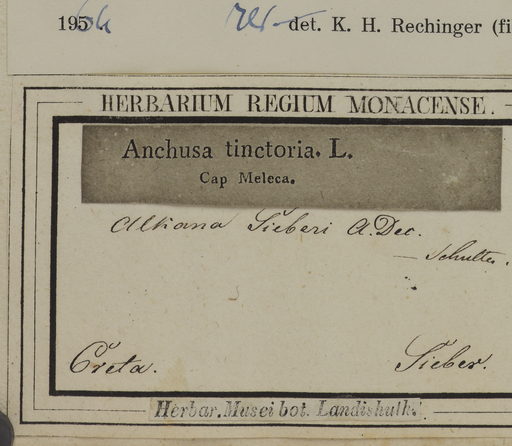 195 det. K. H. Rechinger (fi
HERBARIUM REGIUM MONACENSE.
Anchusa tinctoria. L.
Cap Meleca.
Alkana Sieberi A.Dec.
— Schultes.
Creta.
Sieber.
Herbar. Musei bot. Landishuth.